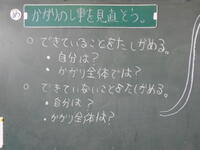 め かかりのし事を見直そう。
○ できていることをたしかめる。
・自分は?
・かかり全体では?
○ できていないことをたしかめる。
・自分は?
・かかり全体は?